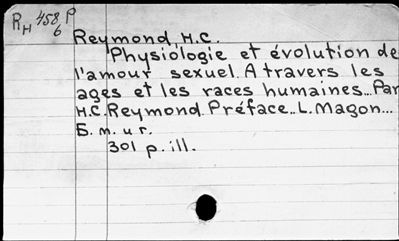 RH 458 P
6
Reymond, H.C.
Physiologie et évolution de
l'amour sexuel. A travers les
ages et les races humaines... Par
H.C. Reymond. Préface... L. Magon...
Б. m. u r.
301 p. ill.